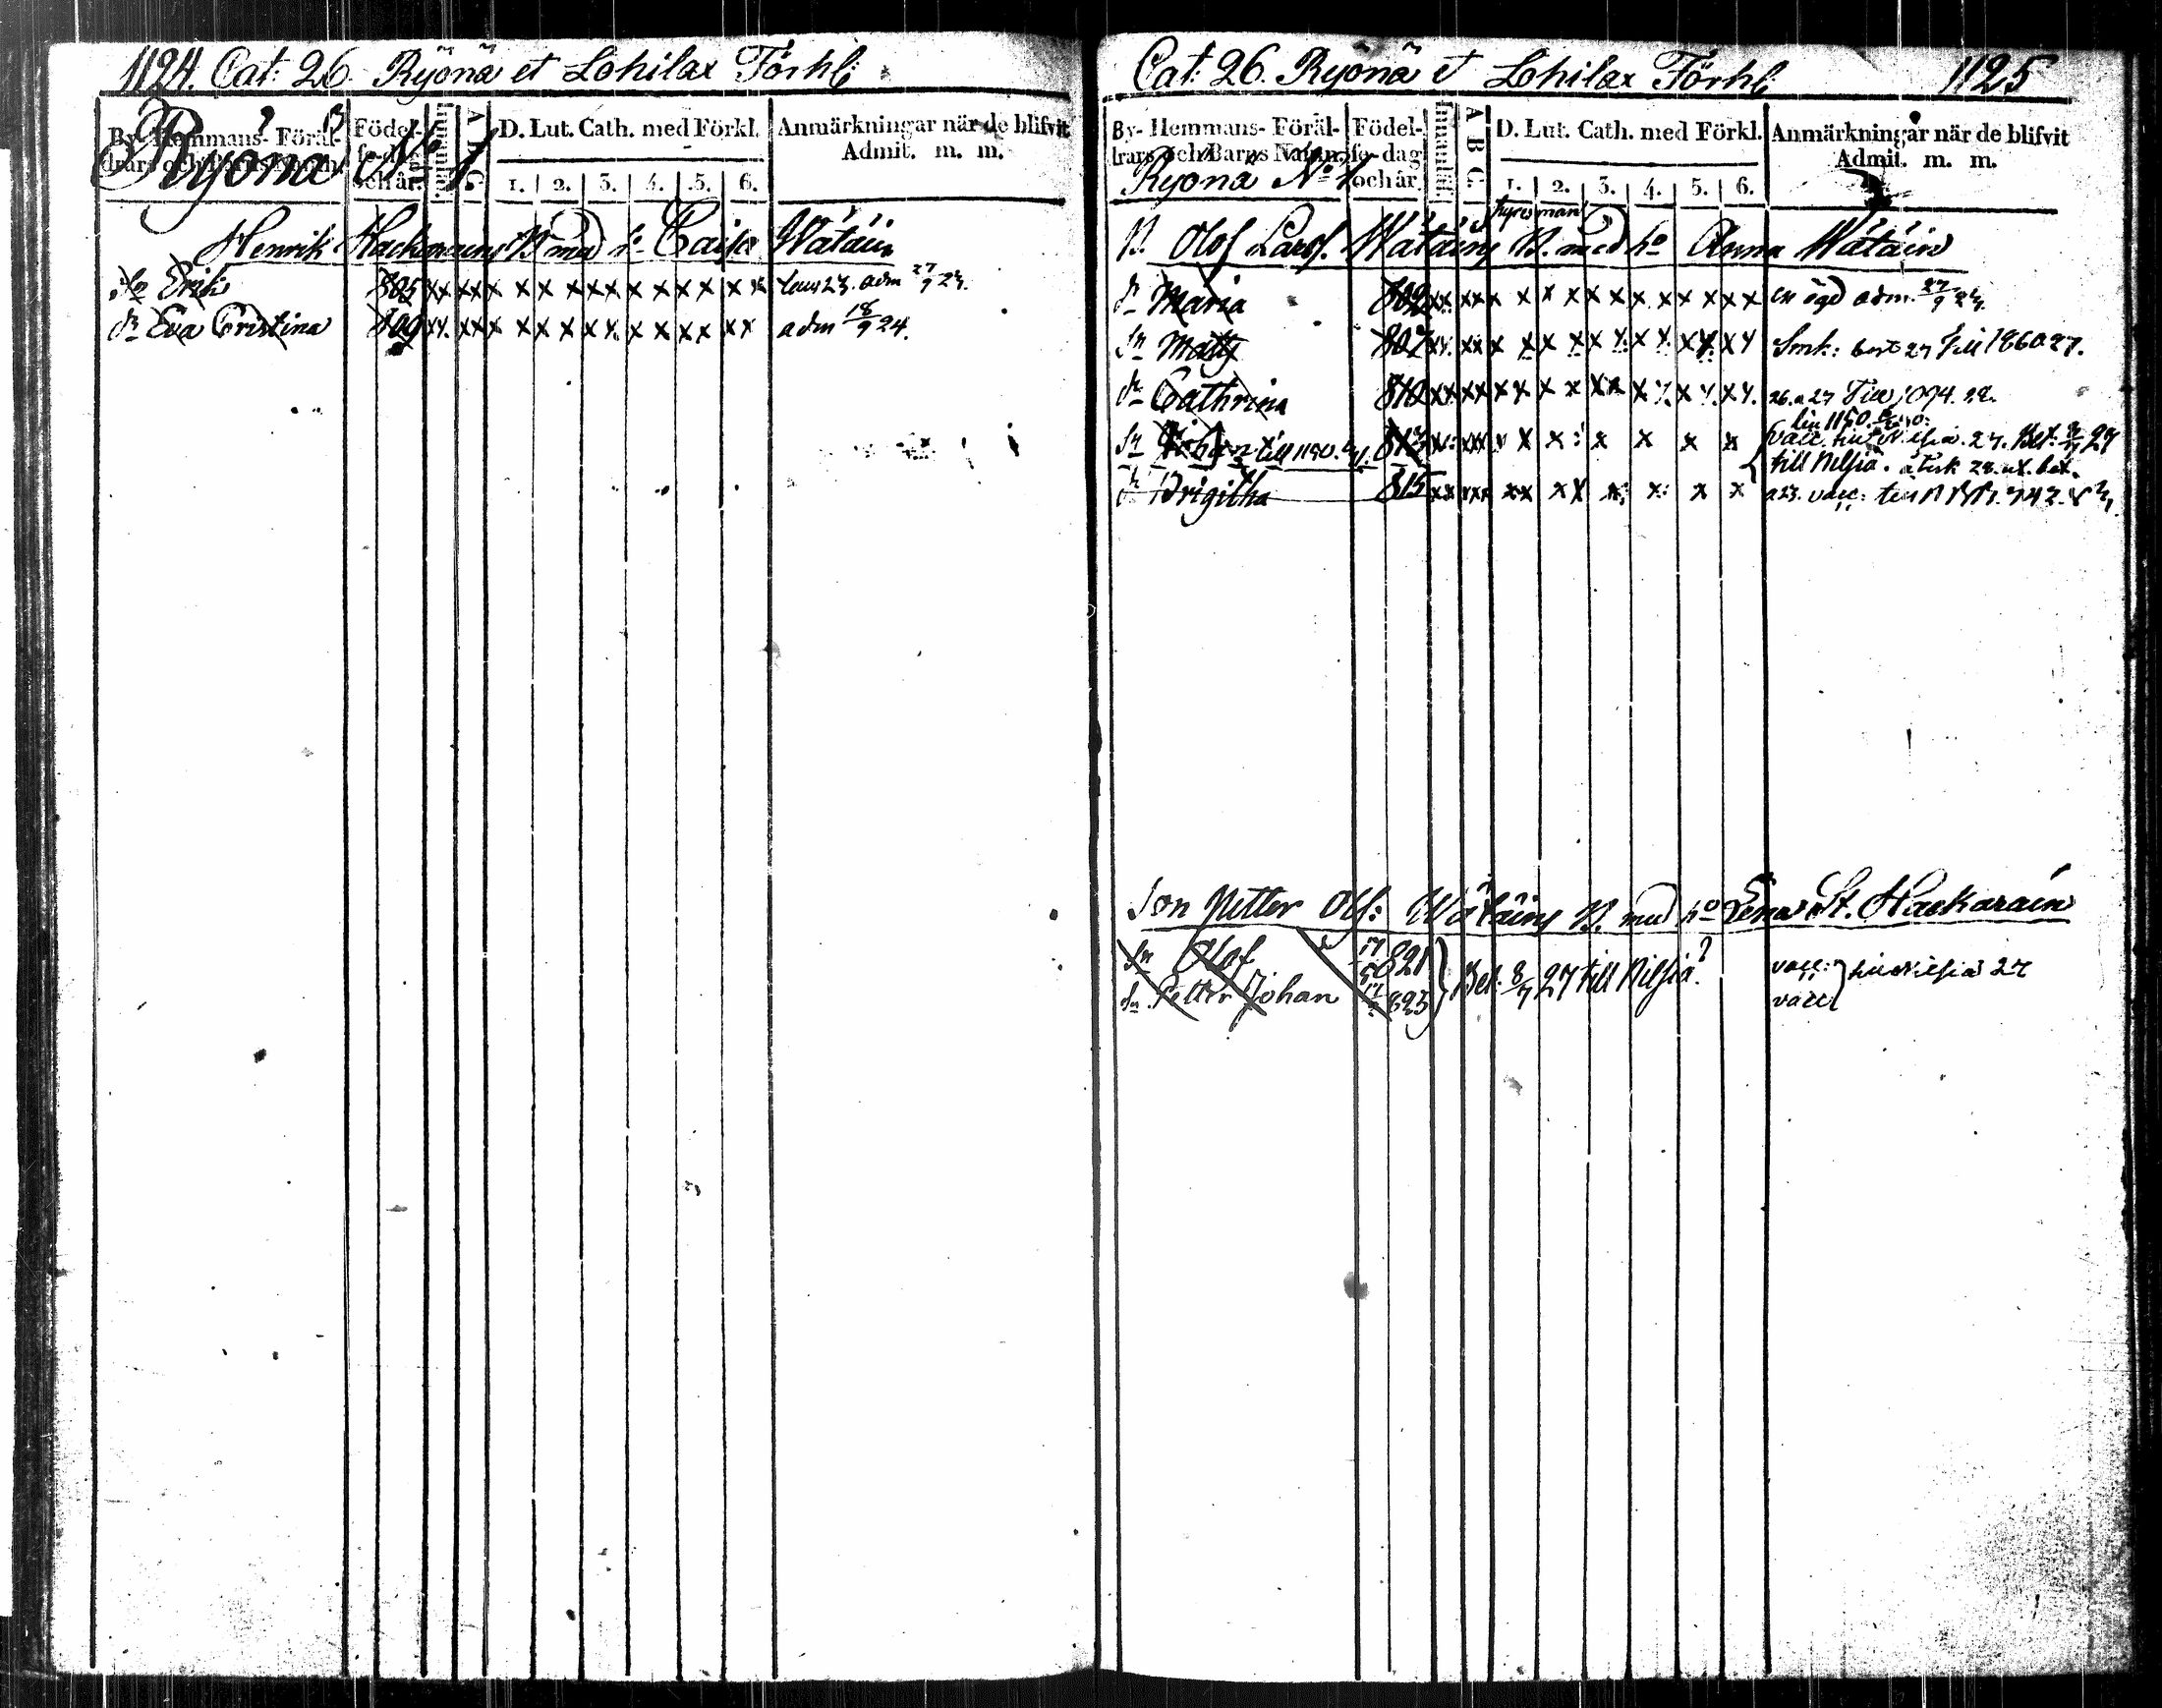 1124. Cat: 26. Ryönä et Lohilax Förhl:
By- Hemmans- Föräl-
drars och Barns Namn.
Födel-
se-dag
och år.
Innanläs.
A B C.
D. Lut. Cath. med Förkl.
1. 2. 3. 4. 5. 6.
Anmärkningar när de blifvit
Admit. m. m.
Ryönä N:o 1
Henrik Hackarains B. med h:o Caisa Wätäin
Sn Erik 805 x x x x x x x x x x x x x x x x x adm 27/9 23.
dr Eva Cristina 809 x x x x x x x x x x x x x x x x x adm 18/9 24.
Cat: 26. Ryönä et Lohilax Förhl 1125
By- Hemmans- Föräl-
drars och Barns Namn.
Födel-
se-dag
och år.
Innanläs.
A B C.
D. Lut. Cath. med Förkl.
1. 2. 3. 4. 5. 6.
Anmärkningar när de blifvit
Admit. m. m.
Ryönä N:o 1
hyresman
B. Olof Larss. Wätäins B. med h:o Anna Wätäin
dr Maria 802 x x x x x x x x x x x x x x x x x en ögd adm. 27/9 23.
Sn Matts 807 x x x x x x x x x x x x x x x x bort 27 till 1860 27.
dr Cathrina 810 x x x x x x x x x x x x x x x x 26. a 27 till 1094. 28.
till 1150.
Sn Johan till 1150. 813 x x x x x x x x x x x vacc. till Nilsiä. 27. Bet. 8/7 27
till Nilsiä. återk 28. ut. bet.
dr Brigitha 815 x x x x x x x x x x x x x a 23. vacc:
Son Petter Olss: Wätäins B. med h:o Lena St. Hackarain
Sn Olof 821
Sn Petter Johan 823 Bet. 8/7 27 till Nilsiä.
vacc:
vacc till Nilsiä 27